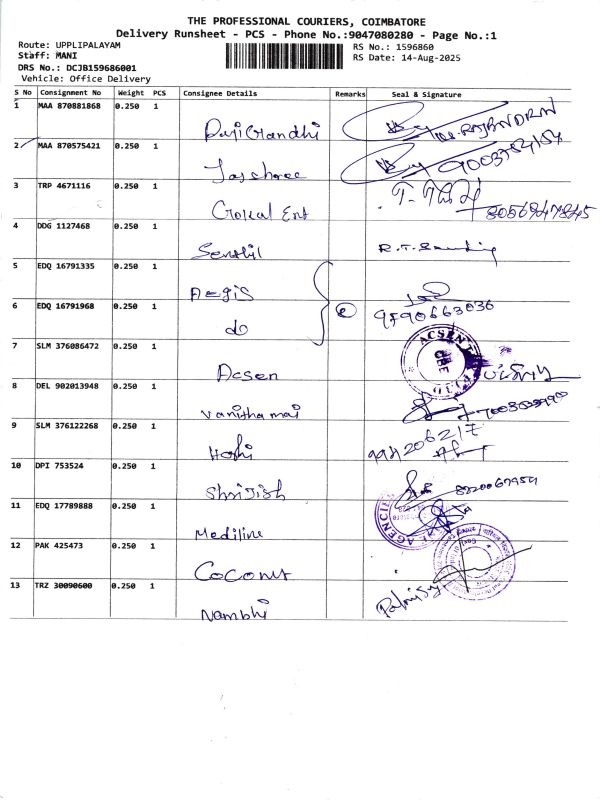 THE PROFESSIONAL COURIERS, COIMBATORE
Delivery Runsheet - PCS - Phone No.:9047080280 - Page No.:1
Route: UPPLIPALAYAM
Staff: MANI
DRS No.: DCJB159686001
Vehicle: Office Delivery
RS No.: 1596860
RS Date: 14-Aug-2025
S No Consignment No Weight PCS Consignee Details Remarks Seal & Signature
1 MAA 870881868 0.250 1
RajiGandhi
2 MAA 870575421 0.250 1
Jayshree 9003784154
3 TRP 4671116 0.250 1
Gokul Ent 8056947845
4 DDG 1127468 0.250 1
Senthil
5 EDQ 16791335 0.250 1
Aegis
6 EDQ 16791968 0.250 1 9790663036
do
7 SLM 376086472 0.250 1 ACSEN
Acsen
8 DEL 902013948 0.250 1
Vanithamai
9 SLM 376122268 0.250 1 994206217
Hoshi
10 DPI 753524 0.250 1
Shrijish
11 EDQ 17789888 0.250 1 AGENCIES
Mediline
12 PAK 425473 0.250 1
Coconut
13 TRZ 30090600 0.250 1
Nambhi